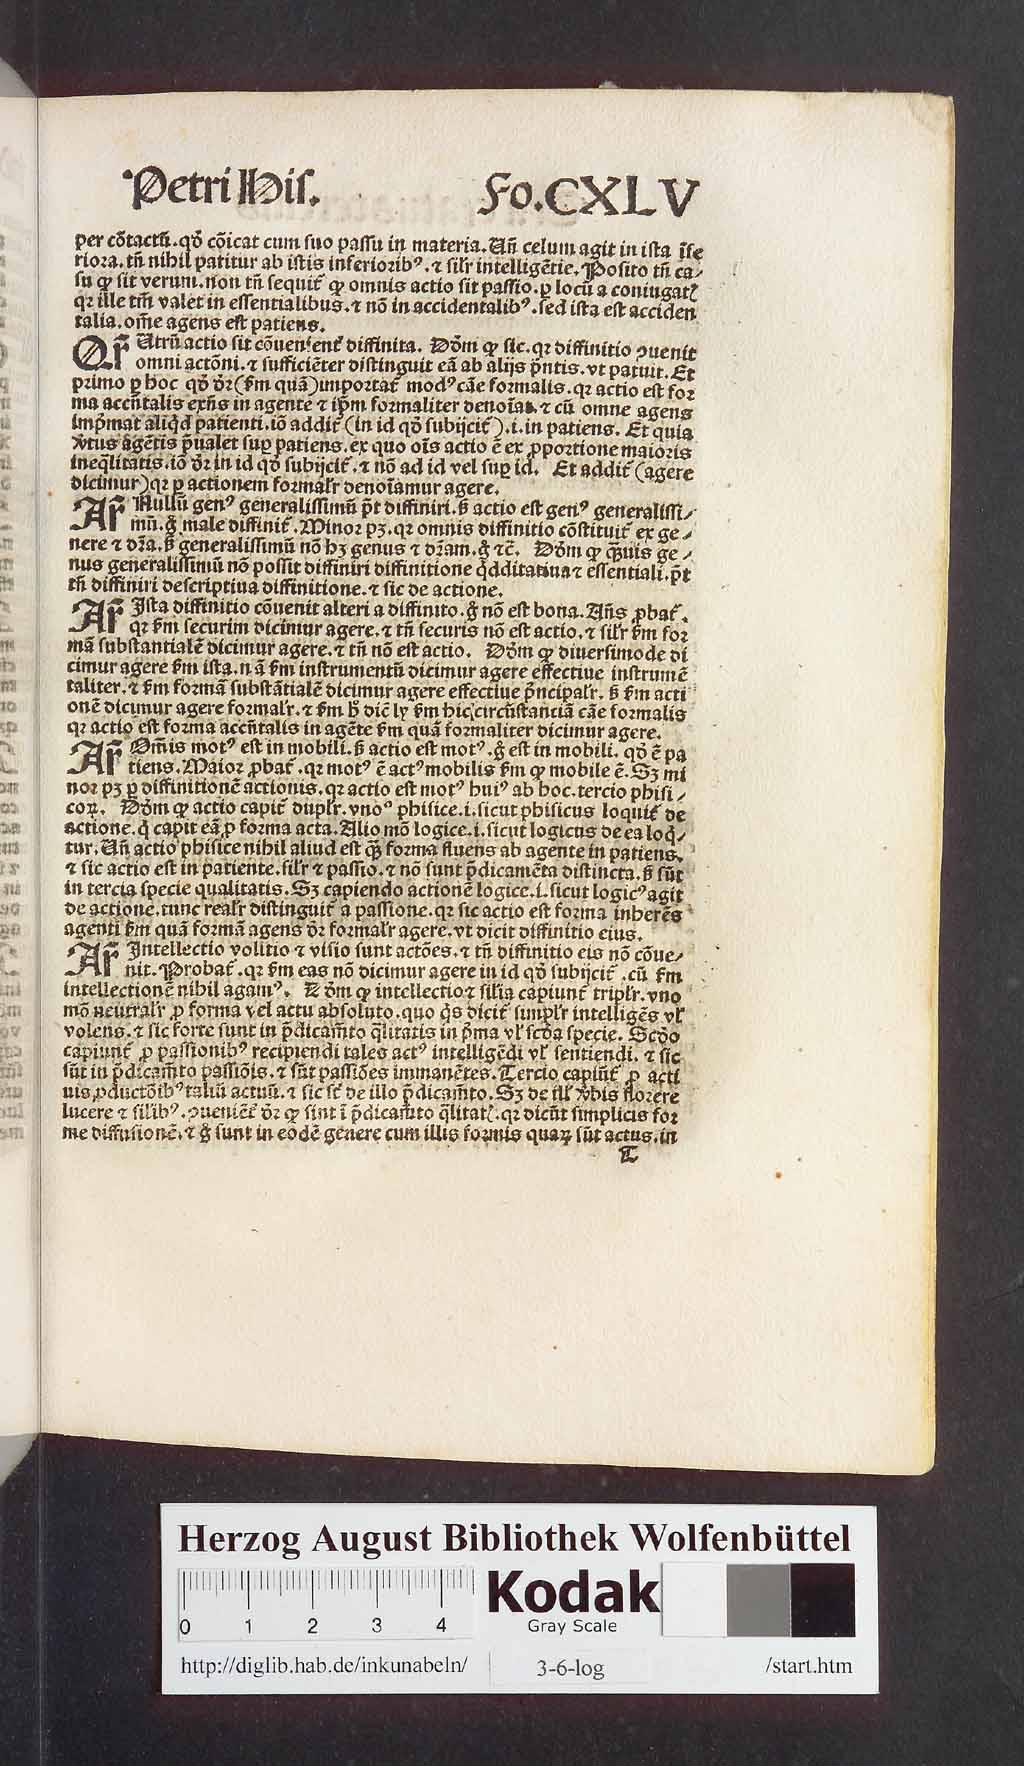 Petri His. Fo.CXLV
per cõtactũ.qđ cõicat cum suo passu in materia.Uñ celum agit in ista ĩfe
riora.tñ nihil patitur ab istis inferioribꝰ.⁊ silr intelligẽtie.Posito tñ ca-
su ꝙ sit verum.non tñ sequit̃ ꝙ omnis actio sit passio.ꝑ locũ a coniugatꝭ
qꝛ ille tm̃ valet in essentialibus.⁊ nõ in accidentalibꝰ.sed ista est acciden
talia.om̃e agens est patiens.
Qr̃ Utrũ actio sit cõuenient̃ diffinita. Dõm ꝙ sic.qꝛ diffinitio ꝯuenit
omni actõni.⁊ sufficiẽter distinguit eã ab alijs p̃ntis.vt patuit.Et
primo ꝑ hoc qđ dr̃(fm̃ quã)importat̃ modꝰ cãe formalis.qꝛ actio est for
ma accñtalis exñs in agente ⁊ ip̃m formaliter denoĩas.⁊ cũ omne agens
imp̃mat aliqd̃ patienti.iõ addit̃ (in id qđ subijcit̃).i.in patiens. Et quia
v̾tus agẽtis p̃ualet suꝑ patiens.ex quo oĩs actio ẽ ex ꝓportione maioris
ineq̃litatis.iõ dr̃ in id qđ subijcit̃.⁊ nõ ad id vel suꝑ id. Et addit̃ (agere
dicimur)qꝛ ꝑ actionem formalr̃ denoĩamur agere.
Ar̃ Nullũ genꝰ generalissimũ p̃t diffiniri.ß actio est genꝰ generalissi-
mũ.g̃ male diffinit̃.Minor pꝫ.qꝛ omnis diffinitio cõstituit̃ ex ge-
nere ⁊ dr̃a.ß generalissimũ nõ hꝫ genus ⁊ dr̃am.g̃ ⁊c̃. Dõm ꝙ q̃uis ge-
nus generalissimũ nõ possit diffiniri diffinitione qđditatiua ⁊ essentiali.p̃t
tñ diffiniri descriptiua diffinitione.⁊ sic de actione.
Ar̃ Ista diffinitio cõuenit alteri a diffinito.g̃ nõ est bona.Añs ꝓbat̃.
qꝛ fm̃ securim dicimur agere.⁊ tñ securis nõ est actio.⁊ silr̃ fm̃ for
mã substantialẽ dicimur agere.⁊ tñ nõ est actio. Dõm ꝙ diuersimode di
cimur agere fm̃ ista.nã fm̃ instrumentũ dicimur agere effectiue instrumẽ
taliter.⁊ fm̃ formã substãtialẽ dicimur agere effectiue p̃ncipalr̃.ß fm̃ acti
onẽ dicimur agere formalr̃.⁊ fm̃ h̾ dic̃ ly fm̃ hic circũstantiã cãe formalis
qꝛ actio est forma accñtalis in agẽte fm̃ quã formaliter dicimur agere.
Ar̃ Om̃is motꝰ est in mobili.ß actio est motꝰ.g̃ est in mobili.qđ ẽ pa
tiens.Maior ꝓbat̃.qꝛ motꝰ ẽ actꝰ mobilis fm̃ ꝙ mobile ẽ.Sꝫ mi
nor pꝫ ꝑ diffinitionẽ actionis.qꝛ actio est motꝰ huiꝰ ab hoc.tercio phisi-
coꝝ. Dõm ꝙ actio capit̃ duplr̃.vnoº phisice.i.sicut phisicus loquit̃ de
actione.q̃ capit eã ꝓ forma acta.Alio mõ logice.i.sicut logicus de ea loq̃-
tur.Uñ actio phisice nihil aliud est q̃ꝫ forma fluens ab agente in patiens.
⁊ sic actio est in patiente.silr̃ ⁊ passio.⁊ nõ sunt p̃dicamẽta distincta.ß sũt
in tercia specie qualitatis.Sꝫ capiendo actionẽ logice.i.sicut logicꝰ agit
de actione.tunc realr̃ distinguit̃ a passione.qꝛ sic actio est forma inherẽs
agenti fm̃ quã formã agens dr̃ formalr̃ agere.vt dicit diffinitio eius.
Ar̃ Intellectio volitio ⁊ visio sunt actões.⁊ tñ diffinitio eis nõ cõue-
nit.Probat̃.qꝛ fm̃ eas nõ dicimur agere in id qđ subijcit̃.cũ fm̃
intellectionẽ nihil agamꝰ. Dõm ꝙ intellectio⁊ silia capiunt̃ triplr̃.vno
mõ neutralr̃ ꝓ forma vel actu absoluto.quo q̃s dicit̃ simplr̃ intelligẽs vl̃
volens.⁊ sic forte sunt in p̃dicam̃to q̃litatis in p̃ma vl̃ scđa specie. Scđo
capiunt̃ ꝓ passionibꝰ recipiendi tales actꝰ intelligẽdi vl̃ sentiendi.⁊ sic
sũt in p̃dicam̃to passiõis.⁊ sũt passiões immanẽtes.Tercio capiũt̃ ꝓ acti
uis ꝓductõibꝰ taliũ actuũ.⁊ sic sc̃ de illo p̃dicam̃to.Sꝫ de ill̃ v̾bis florere
lucere ⁊ silibꝰ.ꝯuenient̃ dr̃ ꝙ sint ĩ p̃dicam̃to q̃litatꝭ.qꝛ dicũt simplicis for
me diffusionẽ.⁊ g̃ sunt in eodẽ genere cum illis formis quaꝝ sũt actus.in
T
Herzog August Bibliothek Wolfenbüttel
0 1 2 3 4
Kodak
Gray Scale
http://diglib.hab.de/inkunabeln/ 3-6-log /start.htm